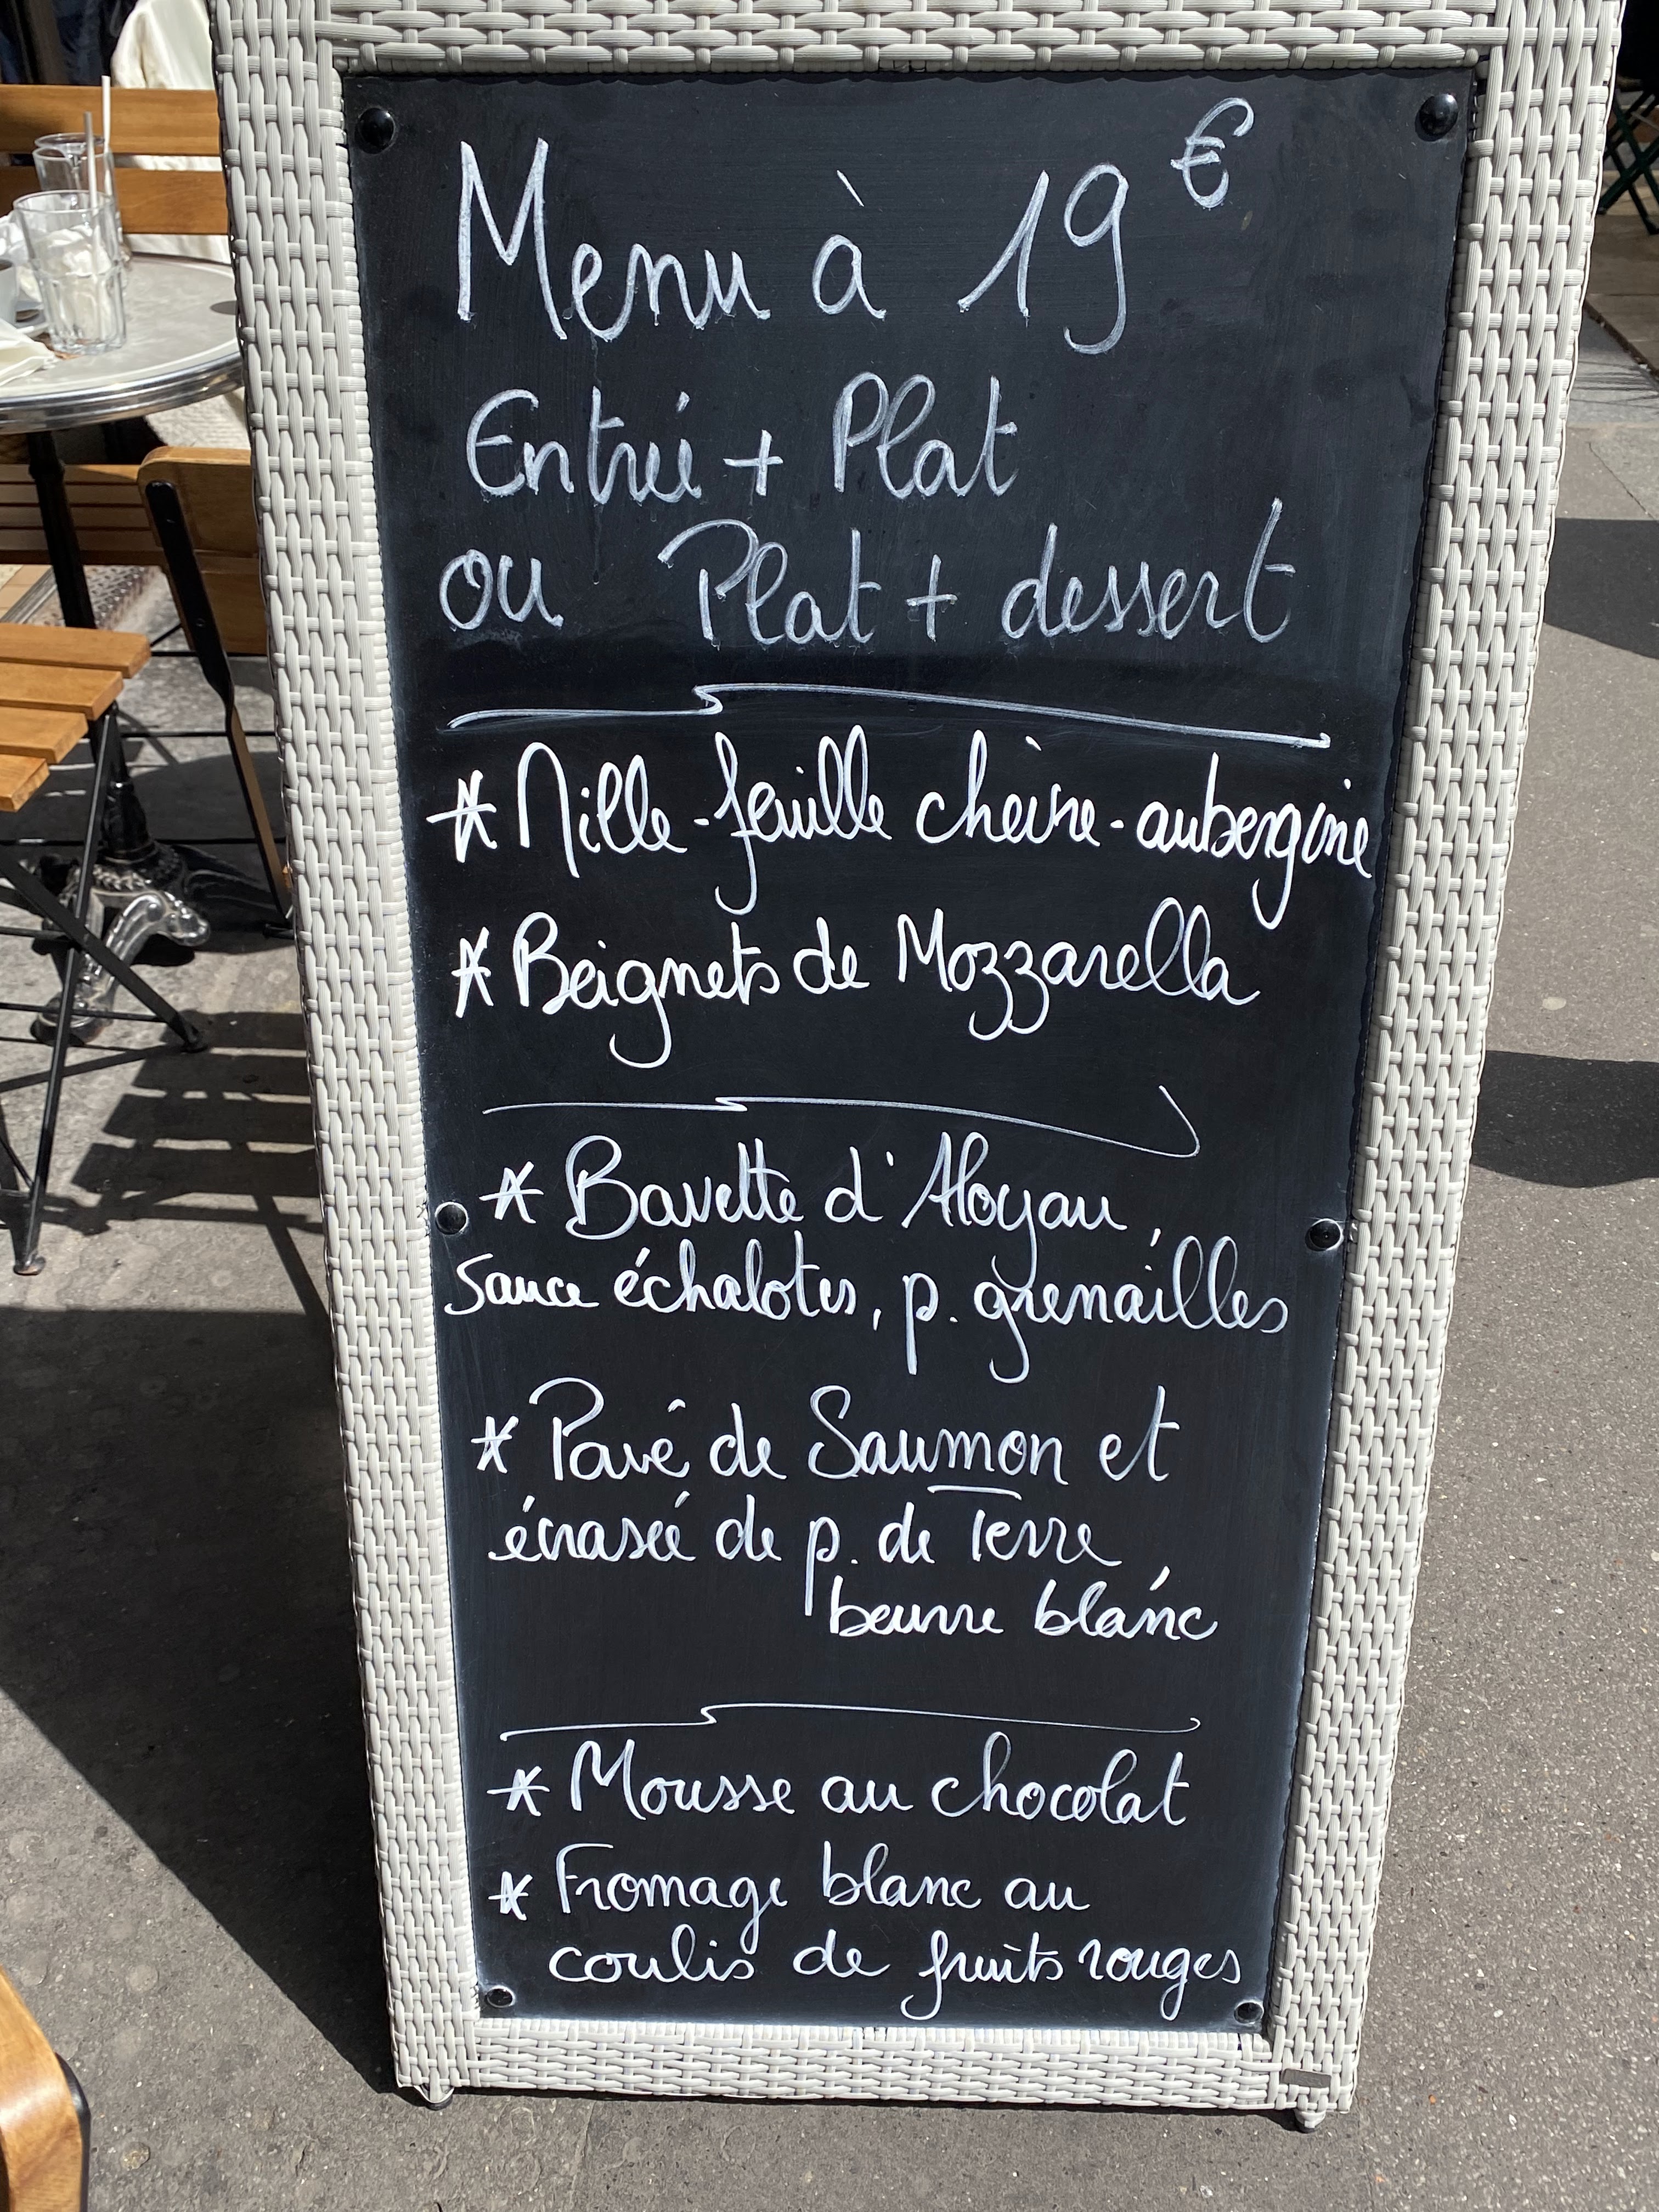 Menu à 19 €
Entrée + Plat
ou Plat + dessert
* Mille-feuille chèvre-aubergine
* Beignets de Mozzarella
* Bavette d'Aloyau,
sauce échalotes, p. grenailles
* Pavé de Saumon et
écrasée de p. de Terre
beurre blanc
* Mousse au chocolat
* Fromage blanc au
coulis de fruits rouges